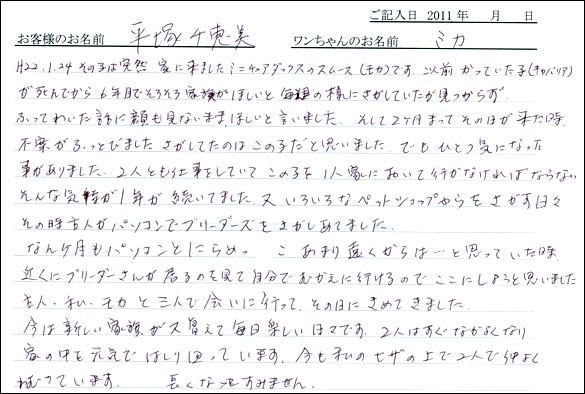 ご記入日 2011 年　　月　　日
お客様のお名前　平塚千恵美　ワンちゃんのお名前　ミカ
H22.1.24 その子は突然 家に来ました ミニチュアダックスのスムース(モカ)です. 以前 かっていた子(キャバリア)
が死んでから 6年目でそろそろ家族がほしいと 毎週の様にさがしていたが見つからず.
ふってわいた話に顔も見ないまま ほしいと言いました. そして2ヶ月まって その日が来た時.
不案がふっとびました さがしてたのはこの子だと思いました. でも ひとつ気になった
事がありました. 2人とも仕事をしていて この子を 1人家において行かなければならない
そんな気持が1年が 続いてました. 又 いろいろなペットショップやらを さがす日々
その時 主人がパソコンでブリーダーズをさがしあてました.
なんヶ月もパソコンとにらめっこ あまり遠くからは…と思っていた時.
近くにブリーダーさんが居るのを見て 自分でむかえに行けるのでここにしようと思いました
主人・私・モカ と 三人で会いに行って, その日に きめてきました.
今は新しい家族がふえて毎日楽しい日々です. 2人はすぐなかよくなり
家の中を元気ではしり回っています. 今も私のヒザの上で2人で仲よく
ねむっています.　　長くなってすみません.